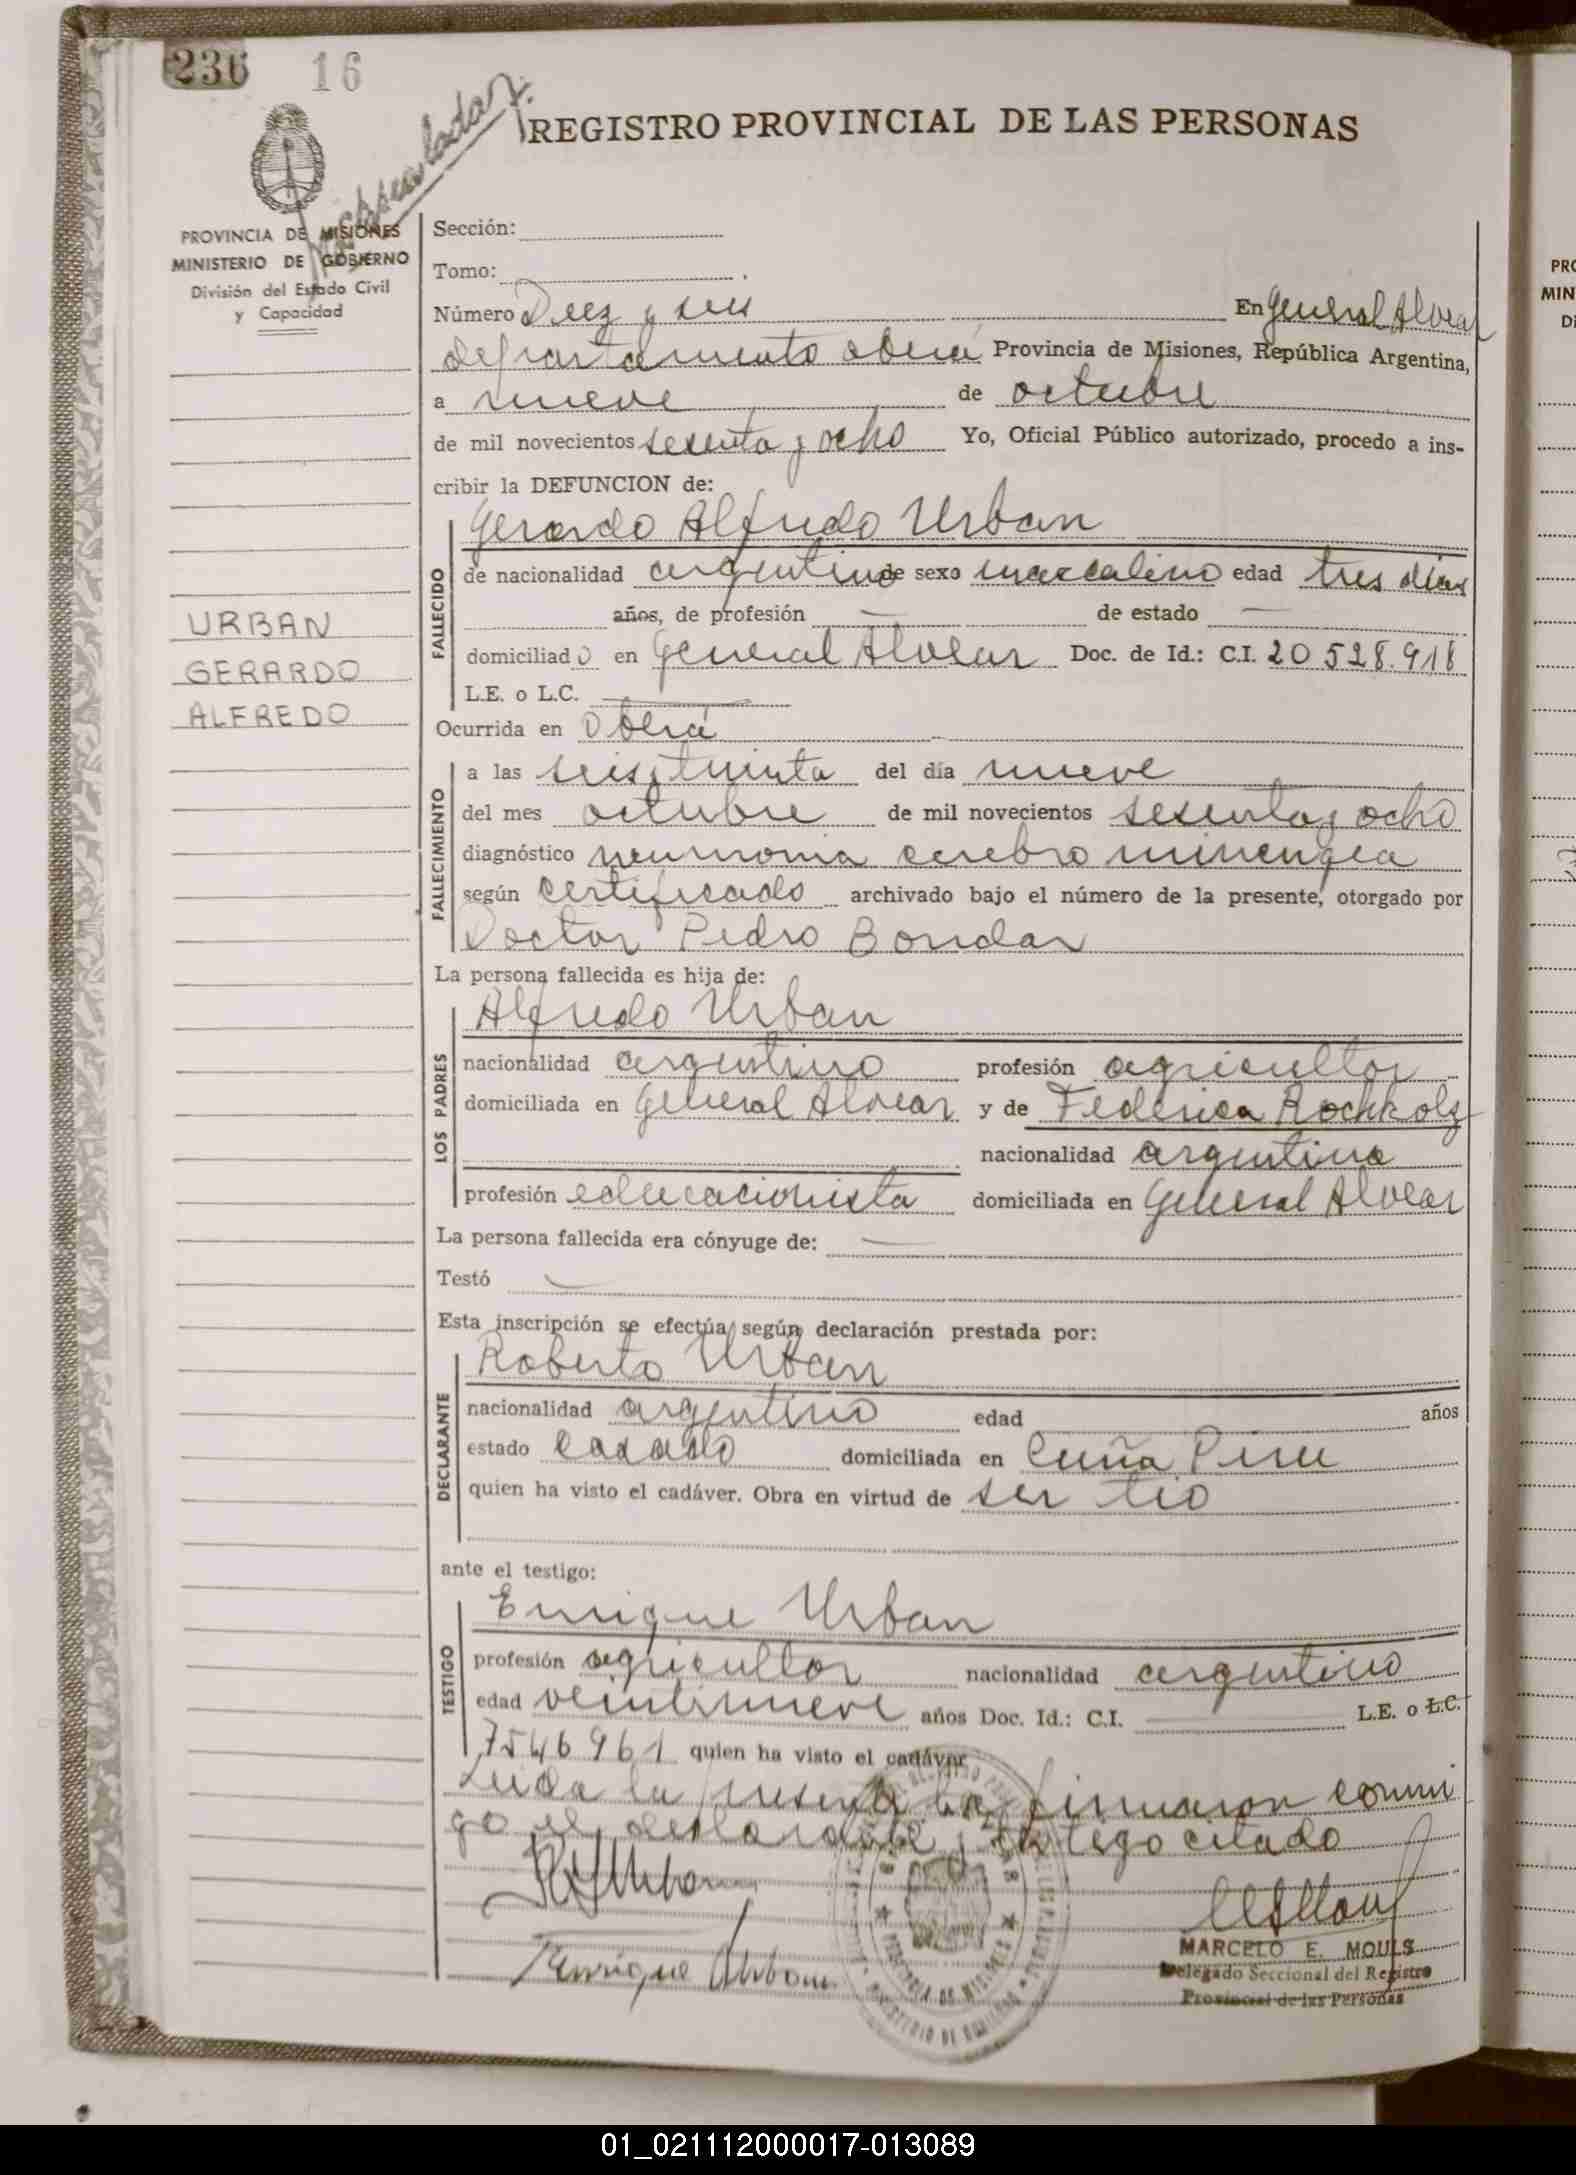 236 16
REGISTRO PROVINCIAL DE LAS PERSONAS
PROVINCIA DE MISIONES
MINISTERIO DE GOBIERNO
División del Estado Civil
y Capacidad
URBAN
GERARDO
ALFREDO
Sección:
Tomo:
Número Diez y seis En General Alvear
departamento oberá Provincia de Misiones, República Argentina,
a nueve de octubre
de mil novecientos sesenta y ocho Yo, Oficial Público autorizado, procedo a ins-
cribir la DEFUNCION de:
FALLECIDO
Gerardo Alfredo Urban
de nacionalidad argentino de sexo masculino edad tres días
años, de profesión — de estado —
domiciliado en General Alvear Doc. de Id.: C.I. 20 528.918
L.E. o L.C.
Ocurrida en Oberá
FALLECIMIENTO
a las seis y treinta del día nueve
del mes octubre de mil novecientos sesenta y ocho
diagnóstico neumonia cerebro minengea
según certificado archivado bajo el número de la presente, otorgado por
Doctor Pedro Bondar
La persona fallecida es hija de:
LOS PADRES
Alfredo Urban
nacionalidad argentino profesión agricultor
domiciliada en General Alvear y de Federica Rochholz
nacionalidad argentina
profesión educacionista domiciliada en General Alvear
La persona fallecida era cónyuge de: —
Testó —
Esta inscripción se efectúa según declaración prestada por:
DECLARANTE
Roberto Urban
nacionalidad argentino edad años
estado casado domiciliada en Cuña Piru
quien ha visto el cadáver. Obra en virtud de ser tio
ante el testigo:
TESTIGO
Enrique Urban
profesión agricultor nacionalidad argentino
edad veintinueve años Doc. Id.: C.I. — L.E. o L.C.
7546961 quien ha visto el cadáver
Leida la presente la firmaron conmi
go el declarante y testigo citado
Enrique Urban
MARCELO E. MOULS
Delegado Seccional del Registro
Provincial de las Personas
PROVINCIA DE MISIONES
MINISTERIO DE GOBIERNO
01_021112000017-013089